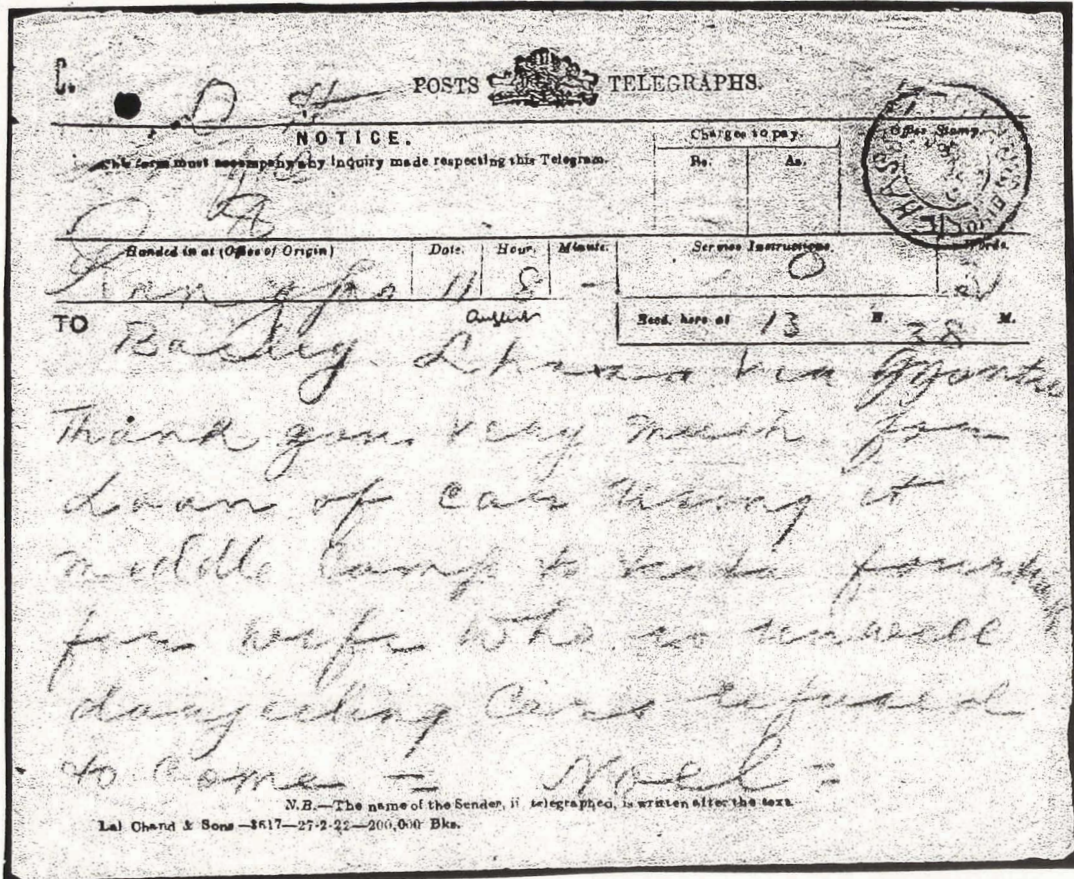 C.
POSTS TELEGRAPHS.
NOTICE.
This form must accompany any inquiry made respecting this Telegram.
Charges to pay.
Rs. As.
Office Stamp.
Handed in at (Office of Origin) Date. Hour. Minute. Service Instructions. Words.
11 8 -
August
Recd. here at 13 H. 38 M.
TO Bailey Lhasa via Gyantse
Thank you very much for
loan of car using it
middle camp to fourteenth
for wife who is unwell
darjeeling cars refused
to come = Noel =
N.B.—The name of the Sender, if telegraphed, is written after the text.
Lal Chand & Sons—3617—27-2-22—200,000 Bks.